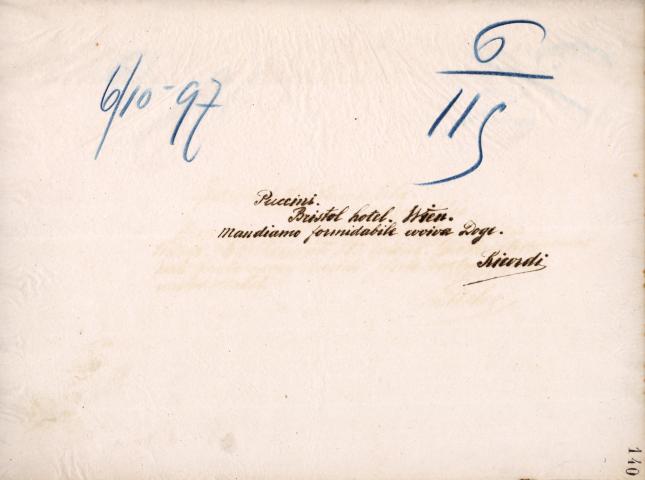 6/10-97
6
115
Puccini.
Bristol hotel. Wien.
Mandiamo formidabile evviva Doge.
Ricordi
140